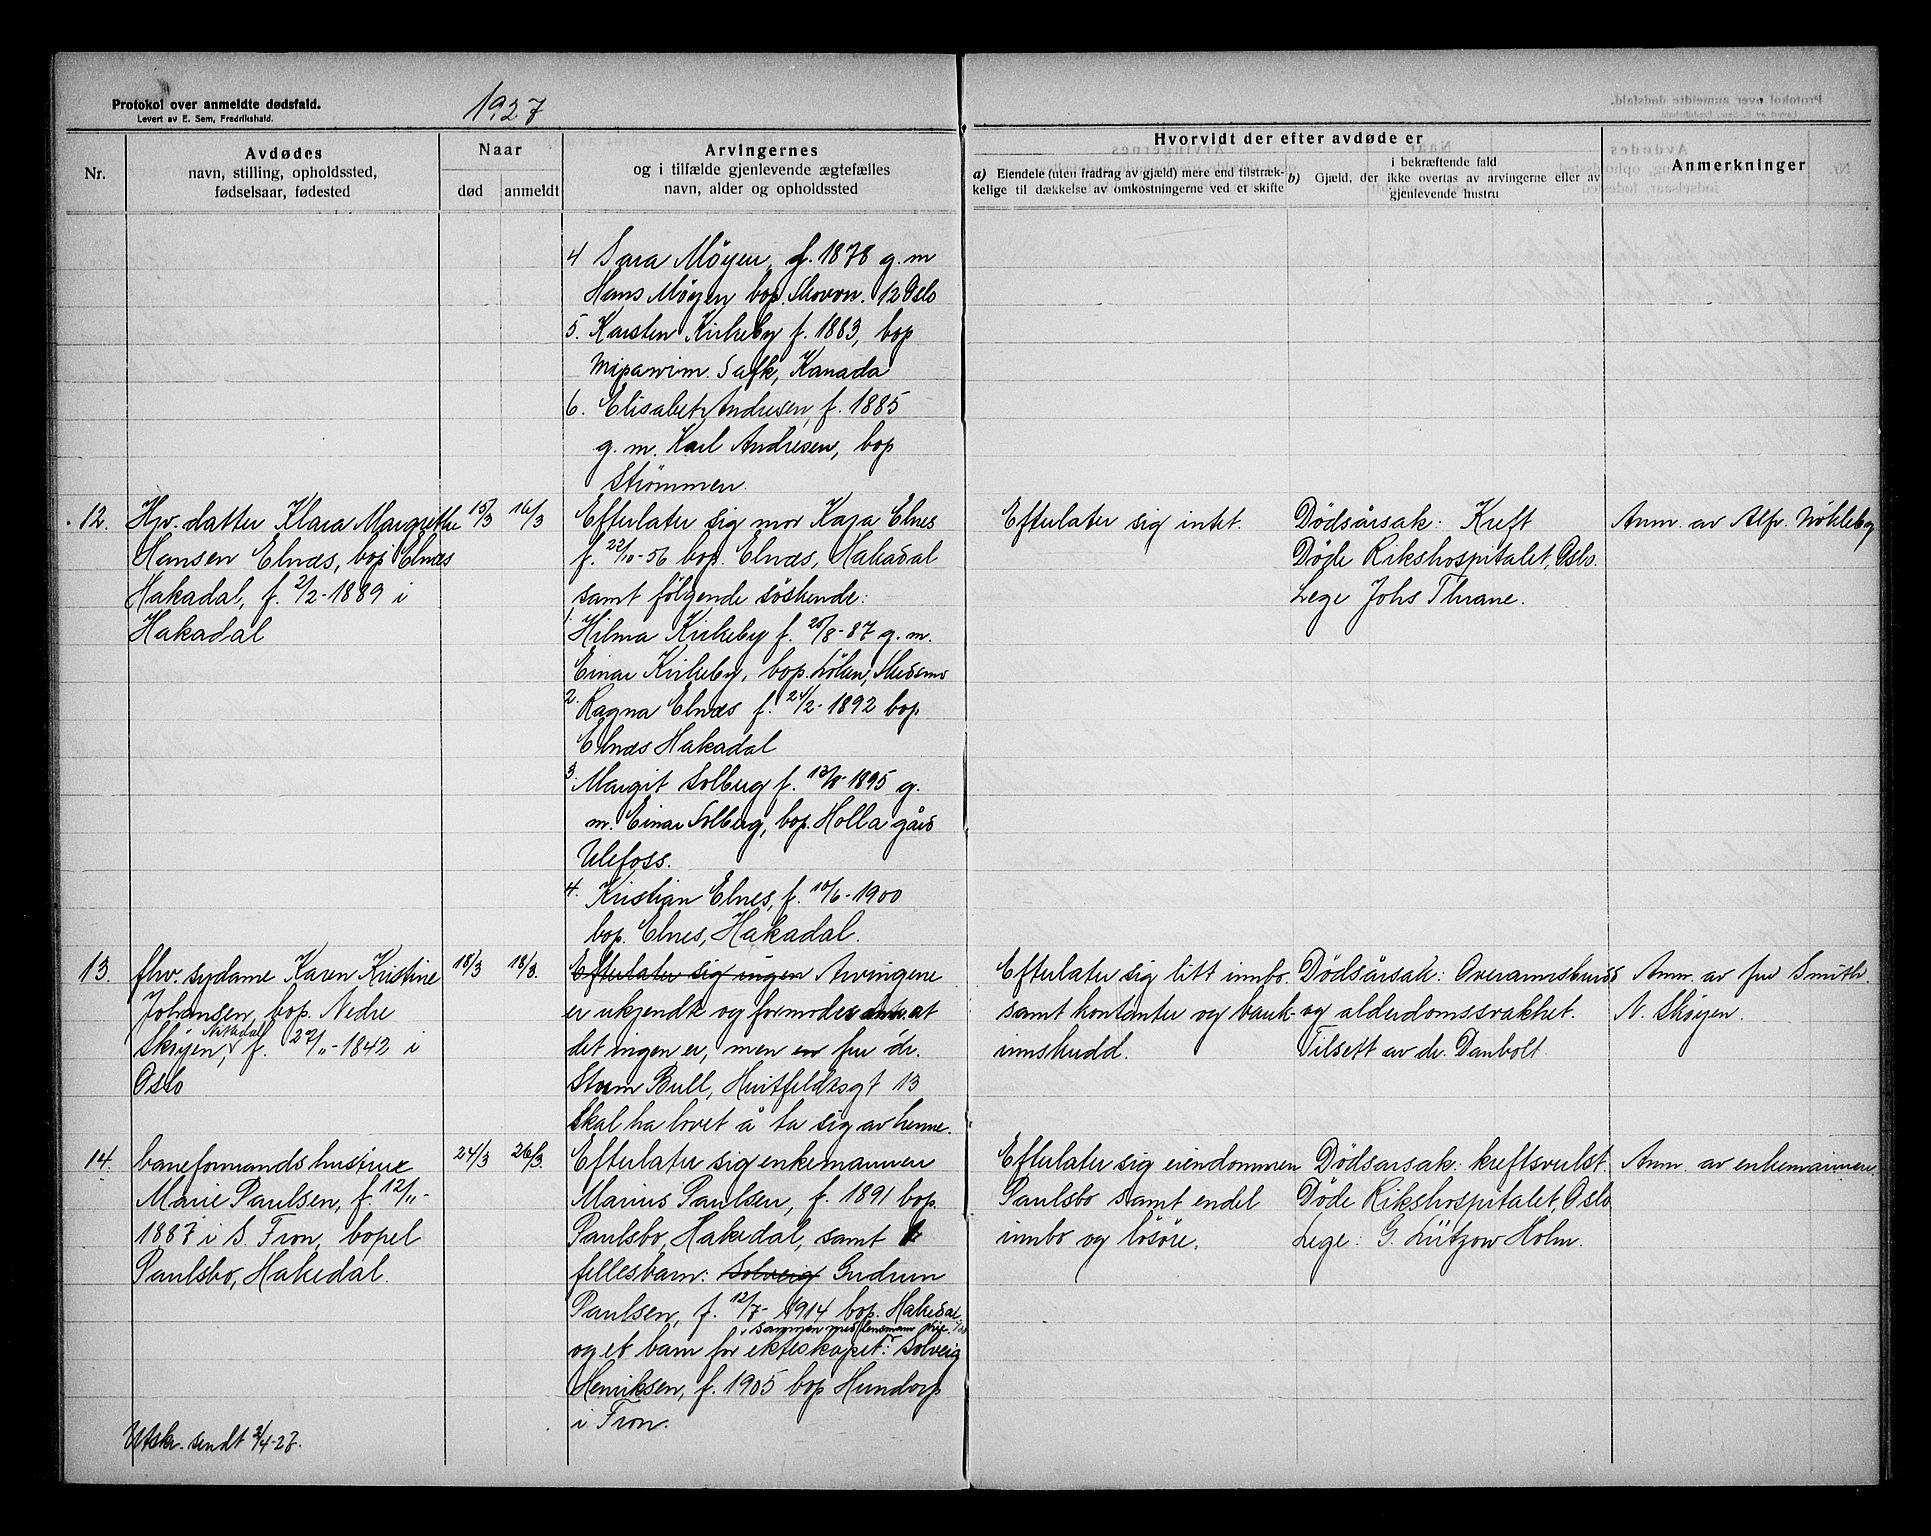 Protokol over anmeldte dødsfald.
Levert av E. Sem, Fredrikshald.
1927
Nr.
Avdødes
navn, stilling, opholdssted,
fødselsaar, fødested
Naar
død
anmeldt
Arvingernes
og i tilfælde gjenlevende ægtefælles
navn, alder og opholdssted
Hvorvidt der efter avdøde er
a) Eiendele (uten fradrag av gjæld) mere end tilstræk-
kelige til dækkelse av omkostningerne ved et skifte
b) Gjæld, der i bekræftende fald
ikke overtas av arvingerne eller av
gjenlevende hustru
Anmerkninger
4 Sara Møyen f. 1878 g. m
Hans Møyen bop. Skovvn. 12 Oslo
5. Karsten Kirkeby f. 1883, bop
Mipawim. Safk, Kanada
6. Elisabet Andresen, f. 1885
g. m. Karl Andresen, bop
Strømmen.
12. Hv. datter Klara Margrethe
Hansen Elnæs, bop Elnæs
Hakadal, f. 2/2-1889 i
Hakadal
15/3
16/3
Efterlater sig mor Kaja Elnes
f. 22/10-56 bop. Elnæs, Hakadal
samt følgende søskende:
1. Hilma Kirkeby f. 20/8-87 g. m.
Einar Kirkeby, bop. Løken, Skedsmo
2. Ragna Elnæs f. 24/2-1892 bop
Elnæs Hakadal
3. Margit Solberg f. 13/8-1895 g.
m. Einar Solberg, bop. Holla gård
Ulefoss.
4. Kristian Elnes, f. 10/6-1900
bop. Elnes, Hakadal.
Efterlater sig intet.
Dødsårsak: Kreft
Døde Rikshospitalet, Oslo.
Lege Johs Thrane.
Anm. av Alfr. Nökleby
13. fhv. sydame Karen Kristine
Johansen, bop. Nedre
Skøyen, Nitedal f. 22/11-1842 i
Oslo
18/3
18/3.
Efterlater sig ingen Arvingene
er ukjendt og formodes at
det ingen er, men en fru dr.
Storm Bull, Huitfeldtsgt 13
skal ha lovet å ta sig av henne.
Efterlater sig litt innbo
samt kontanter og bank-
innskudd.
Dødsårsak: Overanstrengelse
og alderdomssvakhet.
Tilsett av dr. Danbolt.
Anm. av fru Smith.
N. Skøyen.
14. baneformands hustrue
Marie Paulsen, f. 12/11-
1887 i S. Fron, bopel
Paulsbo, Hakedal.
24/3
26/3.
Efterlater sig enkemannen
Marius Paulsen, f. 1891 bop.
Paulsbo, Hakedal, samt 1
fellesbarn: Solveig Gudrun
Paulsen, f. 12/7-1914 bop. Hakedal
sammen med lensmann
og et barn før ekteskapet: Solveig
Henriksen, f. 1905 bop Hundorp
i Fron.
Efterlater sig eiendommen
Paulsbo samt endel
innbo og løsøre.
Dødsårsak: kreftsvulst.
Døde Rikshospitalet, Oslo
Lege: G. Lützow Holm.
Anm. av enkemannen
Utskr. sendt 2/4-27.